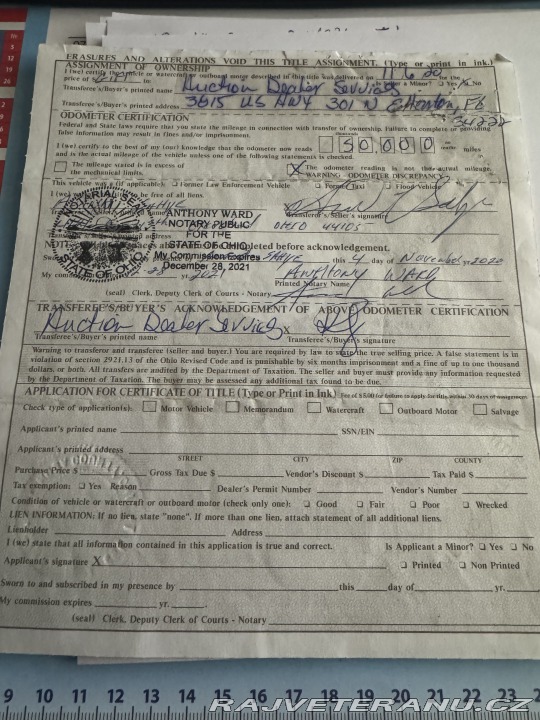 ERASURES AND ALTERATIONS VOID THIS TITLE ASSIGNMENT. (Type or print in ink.)
ASSIGNMENT OF OWNERSHIP
I (we) certify the vehicle or watercraft or outboard motor described in this title was delivered on 11 6 20 for the
price of $ to a Minor? ☐ Yes No
Transferee's/Buyer's printed name Auction Dealer Services
Transferee's/Buyer's printed address 3615 US Hwy 301 N Ellenton, FL
34222
ODOMETER CERTIFICATION
Federal and State laws require that you state the mileage in connection with transfer of ownership. Failure to complete or providing
false information may result in fines and/or imprisonment.
I (we) certify to the best of my (our) knowledge that the odometer now reads 50,000 miles
and is the actual mileage of the vehicle unless one of the following statements is checked.
☐ The mileage stated is in excess of
the mechanical limits.
X The odometer reading is not the actual mileage.
WARNING ODOMETER DISCREPANCY
This vehicle was (if applicable): ☐ Former Law Enforcement Vehicle ☐ Former Taxi ☐ Flood Vehicle
I (we) be free of all liens.
Transferor's/Seller's signature
OHIO 44105
NOTARIAL SEAL
STATE OF OHIO
ANTHONY WARD
NOTARY PUBLIC
FOR THE
STATE OF OHIO
My Commission Expires
December 28, 2021
completed before acknowledgement.
this 4 day of November yr. 2020
My 28 2021 ANTHONY WARD
Printed Name of Notary
(seal) Clerk, Deputy Clerk of Courts - Notary
TRANSFEREE'S/BUYER'S ACKNOWLEDGEMENT OF ABOVE ODOMETER CERTIFICATION
Auction Dealer Services X
Transferee's/Buyer's printed name Transferee's/Buyer's signature
Warning to transferor and transferee (seller and buyer.) You are required by law to state the true selling price. A false statement is in
violation of section 2921.13 of the Ohio Revised Code and is punishable by six months imprisonment and a fine of up to one thousand
dollars, or both. All transfers are audited by the Department of Taxation. The seller and buyer must provide any information requested
by the Department of Taxation. The buyer may be assessed any additional tax found to be due.
APPLICATION FOR CERTIFICATE OF TITLE (Type or Print in Ink) Fee of $5.00 for failure to apply for title within 30 days of assignment.
Check type of application(s): ☐ Motor Vehicle ☐ Memorandum ☐ Watercraft ☐ Outboard Motor ☐ Salvage
Applicant's printed name SSN/EIN
Applicant's printed address
STREET CITY ZIP COUNTY
Purchase Price $ Gross Tax Due $ Vendor's Discount $ Tax Paid $
Tax exemption: ☐ Yes Reason Dealer's Permit Number Vendor's Number
Condition of vehicle or watercraft or outboard motor (check only one): ☐ Good ☐ Fair ☐ Poor ☐ Wrecked
LIEN INFORMATION: If no lien, state "none". If more than one lien, attach statement of all additional liens.
Lienholder Address
I (we) state that all information contained in this application is true and correct. Is Applicant a Minor? ☐ Yes ☐ No
Applicant's signature X ☐ Printed ☐ Non Printed
Sworn to and subscribed in my presence by this day of yr.
My commission expires yr.
(seal) Clerk, Deputy Clerk of Courts - Notary
9 10 11 12 13 14 15 16 17 18 19 20 21 22 23 24 25
RAJVETERANU.CZ